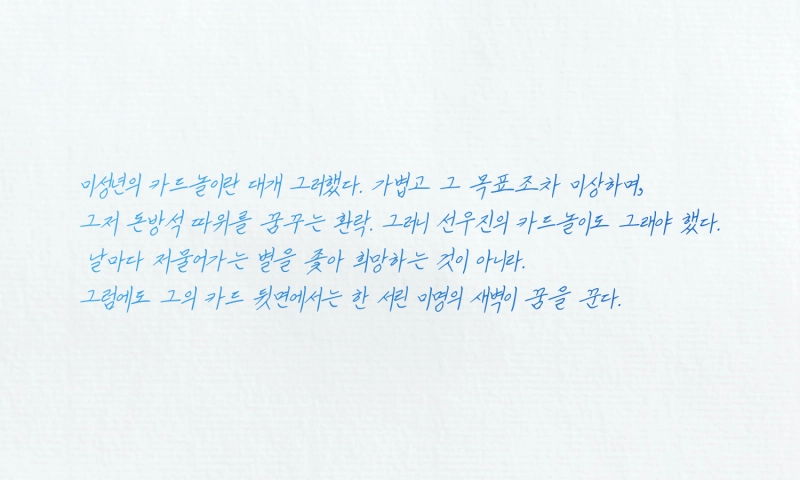 미성년의 카드놀이란 대개 그러했다. 가볍고 그 목표조차 미상하며,
그저 돈방석 따위를 꿈꾸는 환락. 그러니 선우진의 카드놀이도 그래야 했다.
날마다 저물어가는 별을 좇아 희망하는 것이 아니라.
그럼에도 그의 카드 뒷면에서는 한 서린 미명의 새벽이 꿈을 꾼다.